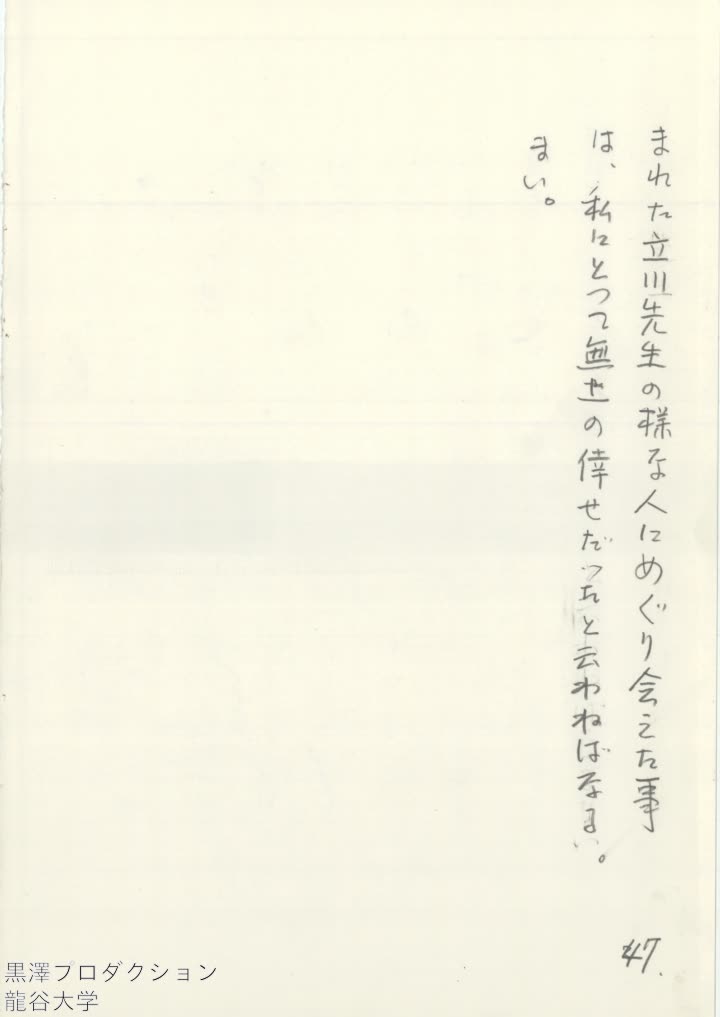 まれた立川先生の様な人にめぐり会えた事
は、私にとって無上の倖せだったと云わねばなるい。
まい。
47.
黒澤プロダクション
龍谷大学